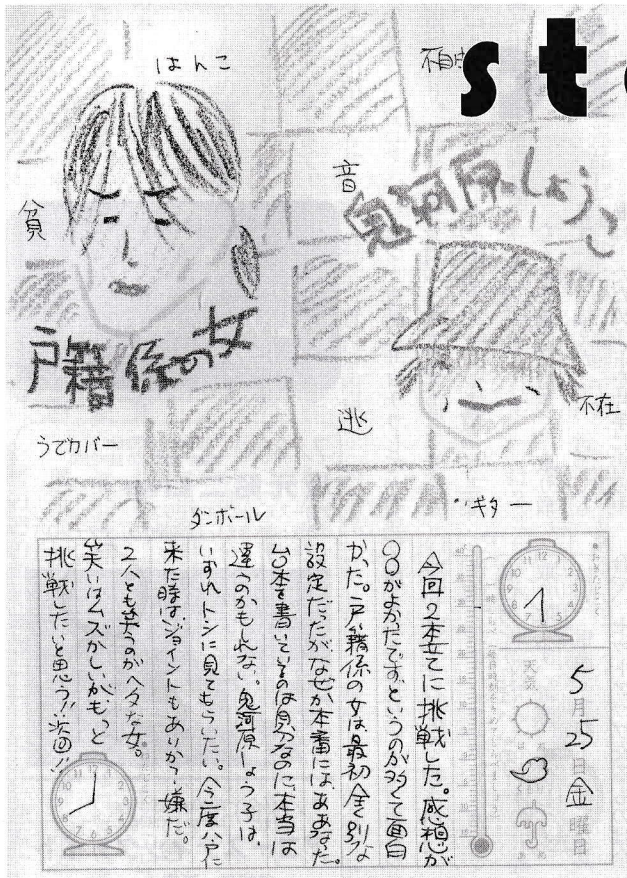 はんこ
不自由
st
貧
音
鬼河原しょうこ
戸籍係の女
逃
不在
うでカバー
ダンボール
ギター
5月25日金曜日
天気
今回2本立てに挑戦した。感想が
〇〇がよかったですというのが多くて面白
かった。戸籍係の女は最初全く別な
設定だったがなぜか本番にはああなった。
台本を書いているのは自分なのに、本当は
違うのかもしれない。鬼河原しょう子は、
いずれトンに見てもらいたい。今度八戸に
来た時はジョイントもありか?嫌だ。
2人とも笑うのがヘタな女。
笑いはムズかしいがもっと
挑戦したいと思う!!次回!!